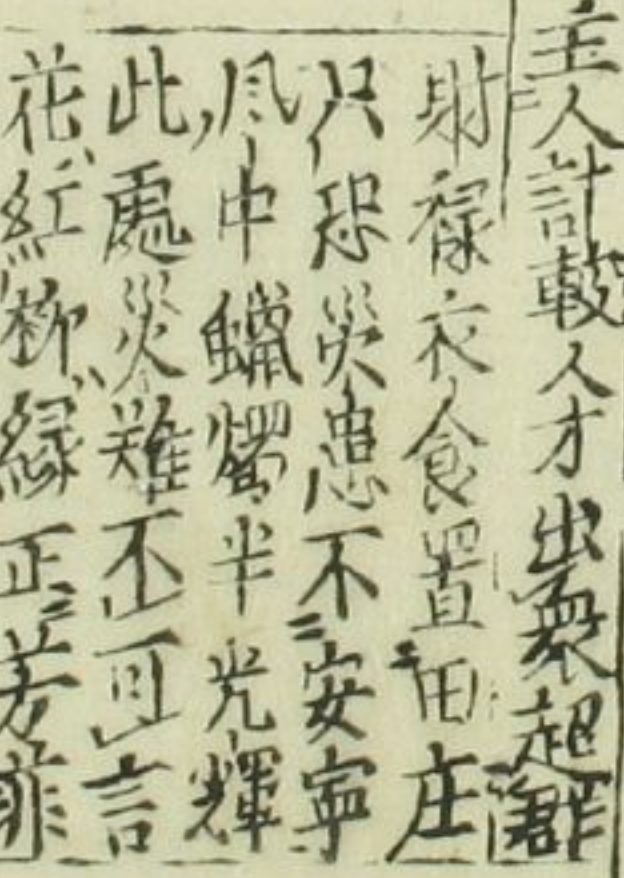 主人計較人才出衆超群
財禄衣食置田庄
只恐災患不安寧
風中蠟燭半光輝
此處災難不可言
花紅柳緑正芳菲